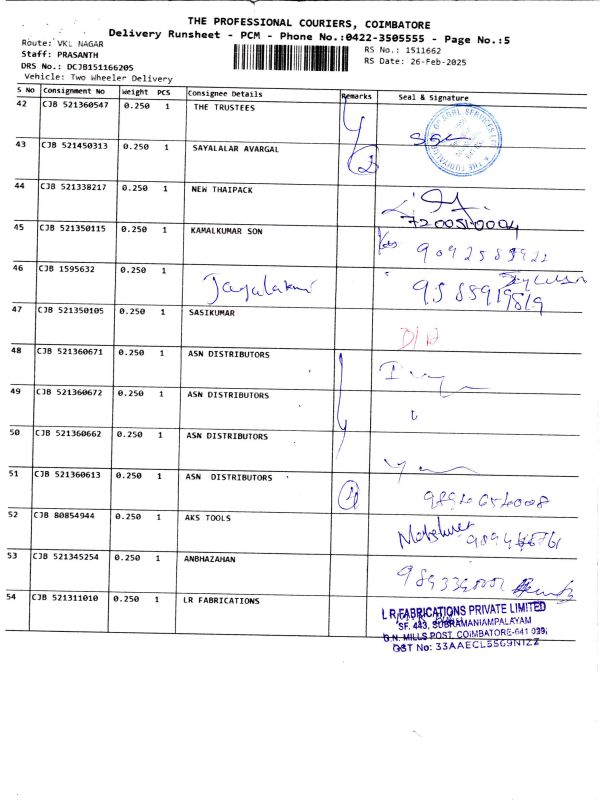 THE PROFESSIONAL COURIERS, COIMBATORE
Delivery Runsheet - PCM - Phone No.:0422-3505555 - Page No.:5
Route: VKL NAGAR
Staff: PRASANTH
DRS No.: DCJB151166205
Vehicle: Two Wheeler Delivery
RS No.: 1511662
RS Date: 26-Feb-2025
S No Consignment No Weight PCS Consignee Details Remarks Seal & Signature
42 CJB 521360547 0.250 1 THE TRUSTEES
43 CJB 521450313 0.250 1 SAYALALAR AVARGAL 2
44 CJB 521338217 0.250 1 NEW THAIPACK
7200510004
45 CJB 521350115 0.250 1 KAMALKUMAR SON
46 CJB 1595632 0.250 1 Jayalakmi
47 CJB 521350105 0.250 1 SASIKUMAR
48 CJB 521360671 0.250 1 ASN DISTRIBUTORS
49 CJB 521360672 0.250 1 ASN DISTRIBUTORS
50 CJB 521360662 0.250 1 ASN DISTRIBUTORS
51 CJB 521360613 0.250 1 ASN DISTRIBUTORS
52 CJB 80854944 0.250 1 AKS TOOLS
53 CJB 521345254 0.250 1 ANBHAZAHAN
54 CJB 521311010 0.250 1 LR FABRICATIONS
L R FABRICATIONS PRIVATE LIMITED
SF. 443, SUBRAMANIAMPALAYAM
G.N. MILLS POST, COIMBATORE-641 029.
GST No: 33AAECL5569N1ZZ